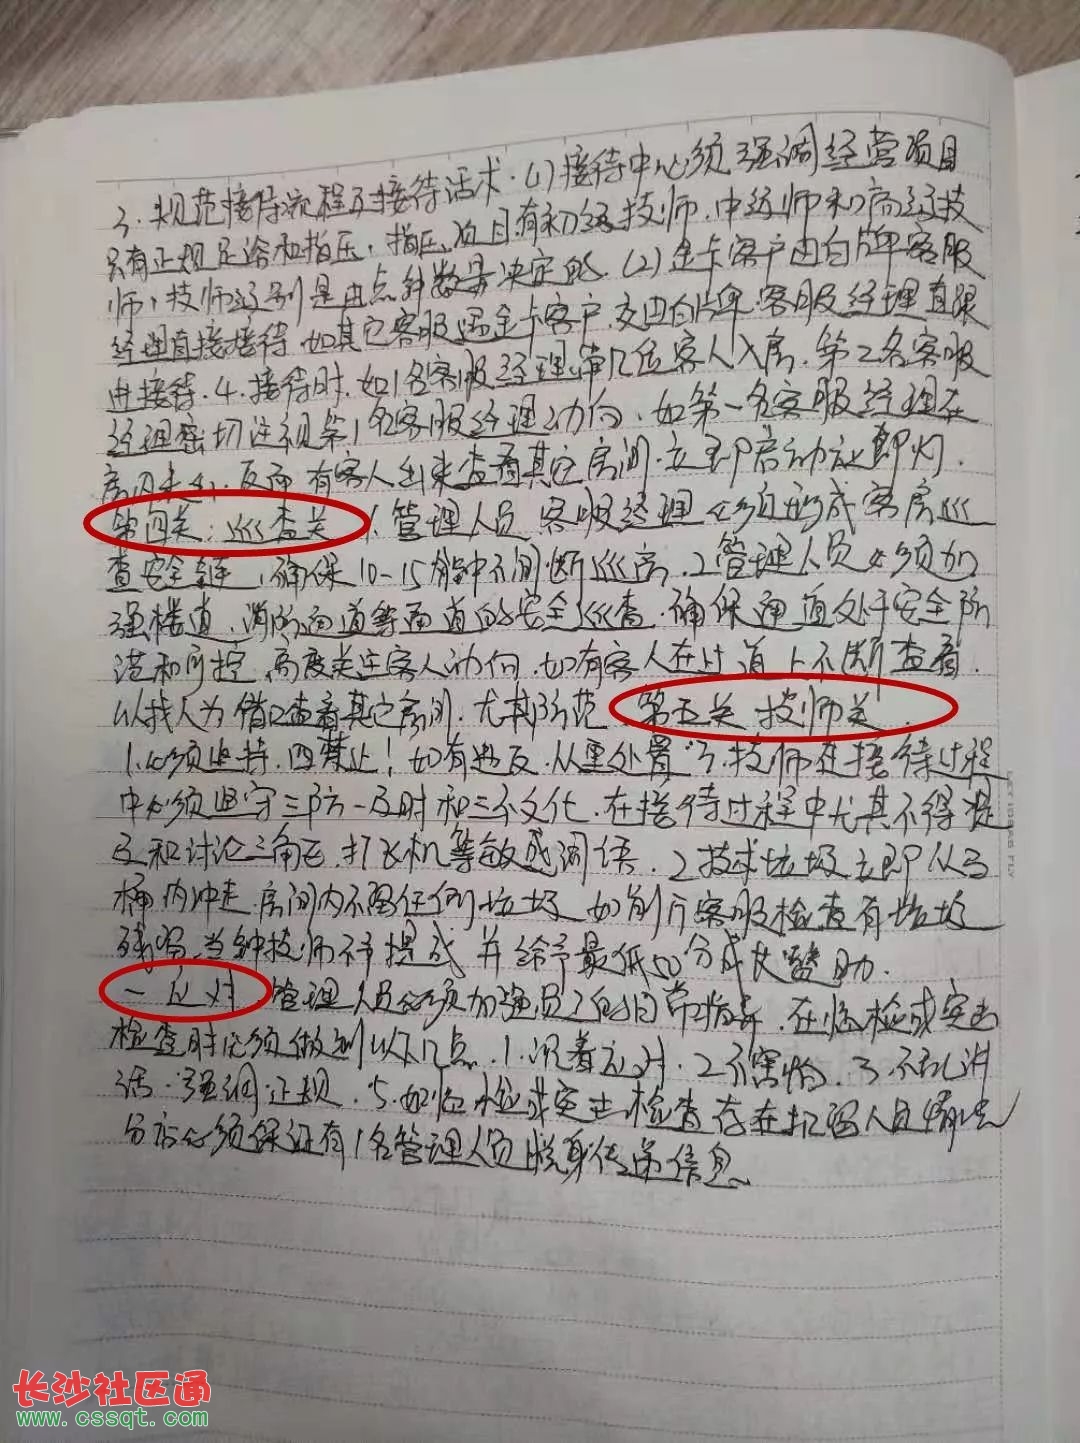 3、规范接待流程及接待话术.(1)接待中必须强调经营项目
只有正规足浴和指压,指压项目有初级技师.中级师和高级技
师,技师级别是由点钟数量决定的.(2)金卡客户由白牌客服
经理直接接待.如其它客服遇金卡客户,交由白牌.客服经理直跟
进接待.4.接待时.如1名客服经理带几位客人入房.第2名客服
经理密切注视第1名客服经理动向.如第一名客服经理在
房间未出.反而有客人出来查看其它房间.立即启动应即灯.
第四关:巡查关 1.管理人员.客服经理必须形成客房巡
查安全链,确保10-15分钟不间断巡房.2管理人员必须加
强楼道、消防通道等通道的安全巡查.确保通道处于安全防
范和可控.高度关注客人动向.如有客人在过道上不断查看.
以找人为借口查看其它房间.尤其防范.第五关 技师关.
1.必须坚持.四禁止!如有违反.从重处置 3.技师在接待过程
中必须坚守三防一及时和三不文化.在接待过程中尤其不得提
及和讨论三角飞.打飞机等敏感词语.2技术垃圾立即从马
桶内冲走.房间内不留任何垃圾 如前厅客服检查有垃圾
残留.当钟技师不予提成 并给予最低50分成长赞助.
一应对 管理人员必须加强员工的日常指导.在临检或突击
检查时必须做到以下几点.1.沉着应对.2不害怕.3.不乱讲
话.强调正规.5.如临检或突击检查存在扣留人员情况
分店必须保证有1名管理人员脱身传递信息、
长沙社区通
www.cssqt.com